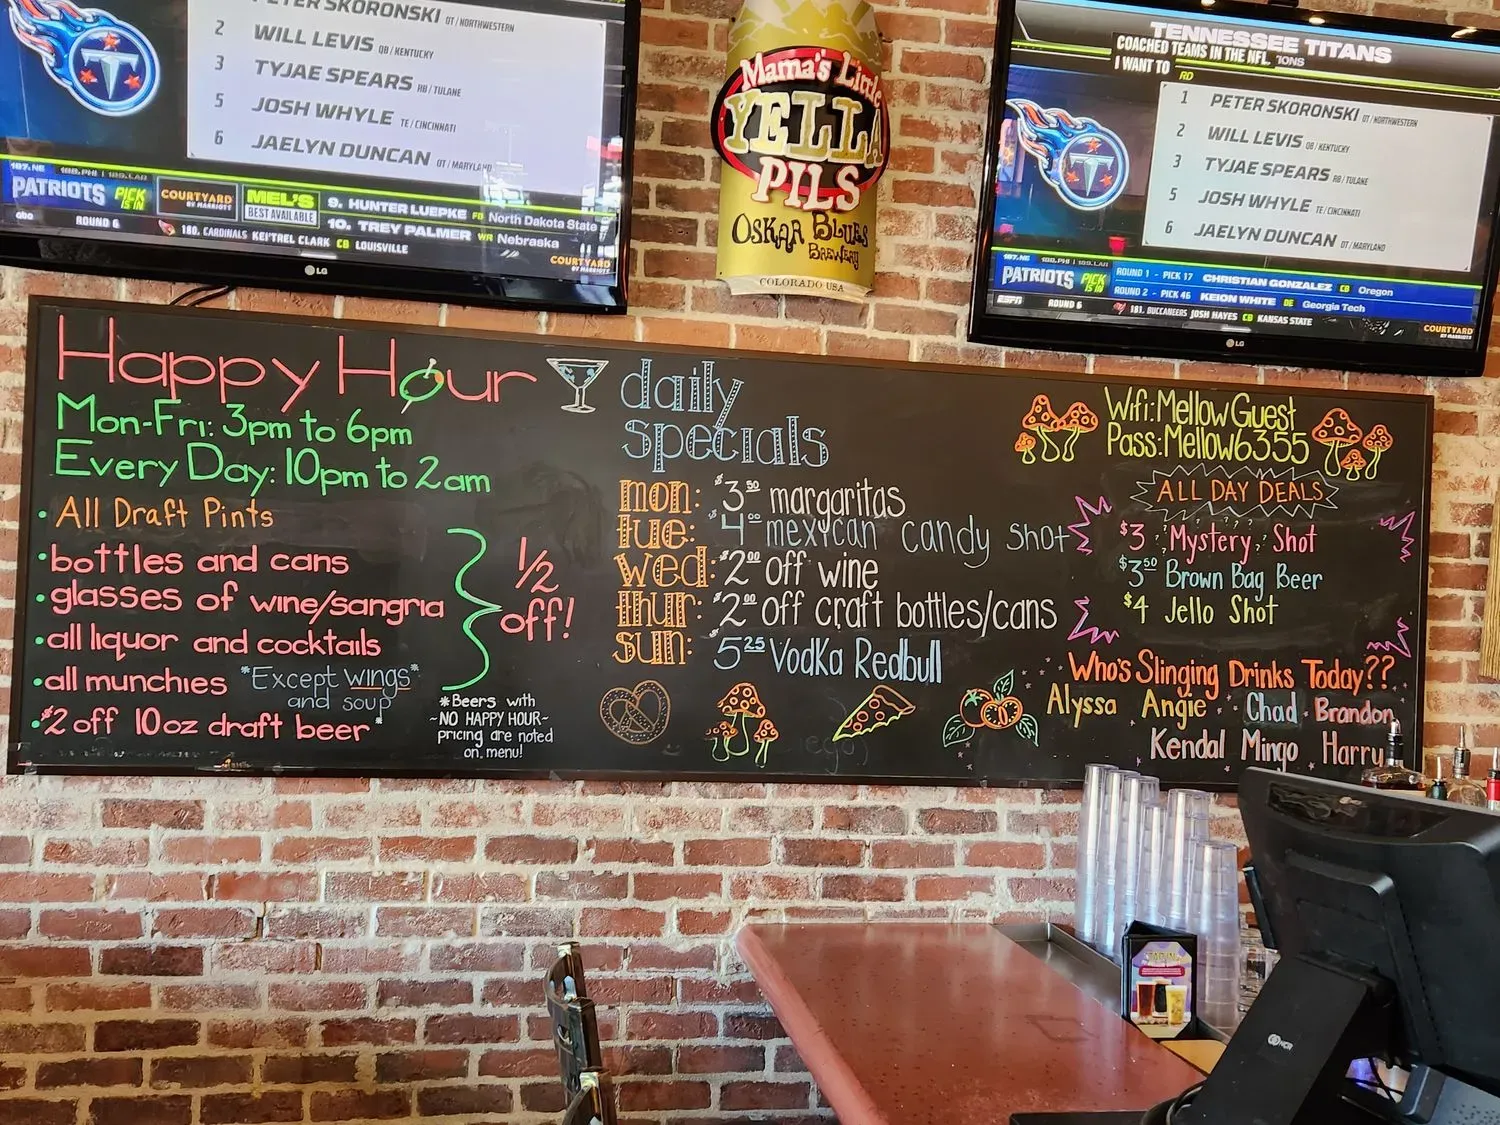 PETER SKORONSKI OT / NORTHWESTERN
2 WILL LEVIS QB / KENTUCKY
3 TYJAE SPEARS RB / TULANE
5 JOSH WHYLE TE / CINCINNATI
6 JAELYN DUNCAN OT / MARYLAND
187. NE 188. PHI 189. LAR
PATRIOTS PICK IS IN
COURTYARD BY MARRIOTT
MEL'S BEST AVAILABLE
9. HUNTER LUEPKE FB North Dakota State
10. TREY PALMER WR Nebraska
abc ROUND 6 180. CARDINALS KEI'TREL CLARK CB LOUISVILLE
COURTYARD BY MARRIOTT
LG
Mama's Little
YELLA
PILS
OSKAR BLUES
BREWERY
COLORADO USA
TENNESSEE TITANS
COACHED TEAMS IN THE NFL.
I WANT TO
RD
1 PETER SKORONSKI OT / NORTHWESTERN
2 WILL LEVIS QB / KENTUCKY
3 TYJAE SPEARS RB / TULANE
5 JOSH WHYLE TE / CINCINNATI
6 JAELYN DUNCAN OT / MARYLAND
187. NE 188. PHI 189. LAR
PATRIOTS PICK IS IN
ROUND 1 - PICK 17 CHRISTIAN GONZALEZ CB Oregon
ROUND 2 - PICK 46 KEION WHITE DE Georgia Tech
ESPN ROUND 6 181. BUCCANEERS JOSH HAYES CB KANSAS STATE
COURTYARD BY MARRIOTT
LG
Happy Hour
Mon-Fri: 3pm to 6pm
Every Day: 10pm to 2am
• All Draft Pints
• bottles and cans
• glasses of wine/sangria
• all liquor and cocktails
• all munchies *Except wings*
and soup
• $2 off 10oz draft beer*
1/2
off!
*Beers with
~NO HAPPY HOUR~
pricing are noted
on menu!
daily
specials
mon: $3.50 margaritas
tue: $4.00 mexycan candy shot
wed: $2.00 off wine
thur: $2.00 off craft bottles/cans
sun: $5.25 Vodka Redbull
Wifi: MellowGuest
Pass: Mellow6355
ALL DAY DEALS
$3 ? Mystery ? Shot
$3.50 Brown Bag Beer
$4 Jello Shot
Who's Slinging Drinks Today??
Alyssa Angie Chad Brandon
Kendal Mingo Harry
NCR